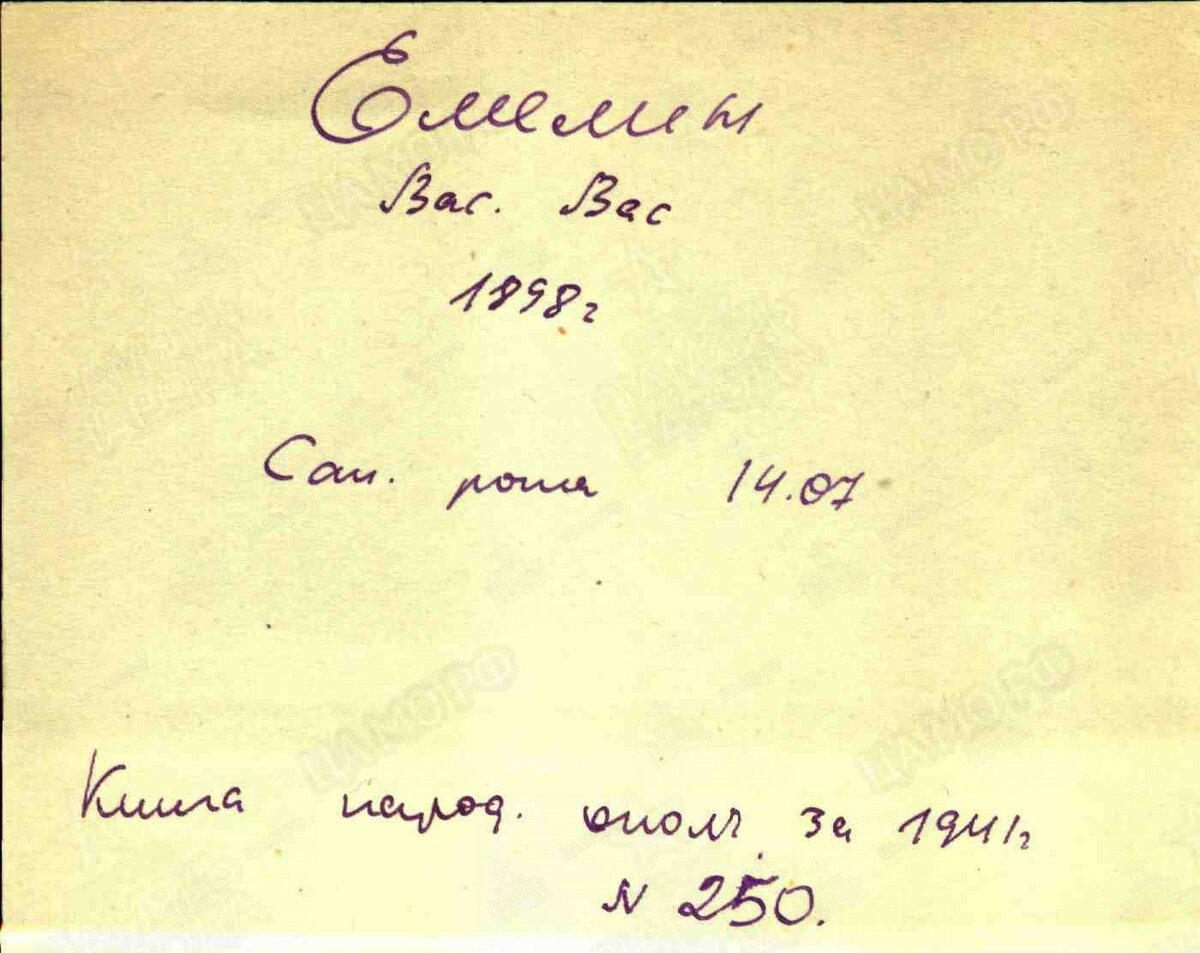 Емелин
Вас. Вас
1898г
Сан. рота 14.07
Книга народ. ополч. за 1941г
N 250.